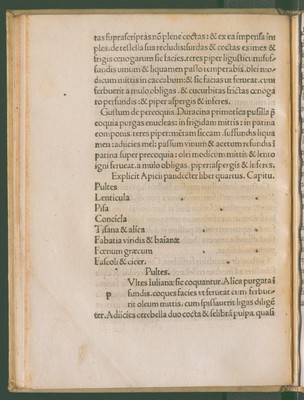 tas suprascriptas nō plene coctas: & ex ea impensa ím
ples. de
surdas & coctas eximes &
frigis cenogarum sic facies. teres piper ligusticū
sandis uinum & liquamen passo temperabis. olei mo-
dicum mittis in caccabum: & sic facias ut ferueat. cum
ferbuerit amulo obligas. & cucurbitas frictas œnoga
ro perfundis: & piper aspergis & inferes.
Gustum de percoquis. Duracina primotica pusilla p
coquia purgas enucleas: in frigidam mittis: in patina
componis. teres piper: mētam siccam. suffundis liqua
men: adiicies mel: passum uinum & acetum refundis ī
patina super percoquia: olei modicum mittis & lento
igni ferueat. amulo obligas. piper aspergis & inferes.
Explicit Apicii pandecter liber quartus. Capitu.
Pultes
Lenticula
Pisa
Concicla
Tisana & alica
Fabatia uiridis & baianæ
Fœnum græcum
Fascoli & cicer.
Pultes.
p Vltes Iulianæ sic coquuntur. Alica purgata ī
fundis. coques facies ut ferueat cum ferbue-
rit oleum mittis. cum spissauerit ligas diligē
ter. Adiicies cerebella duo cocta & selibrā pulpæ quasi